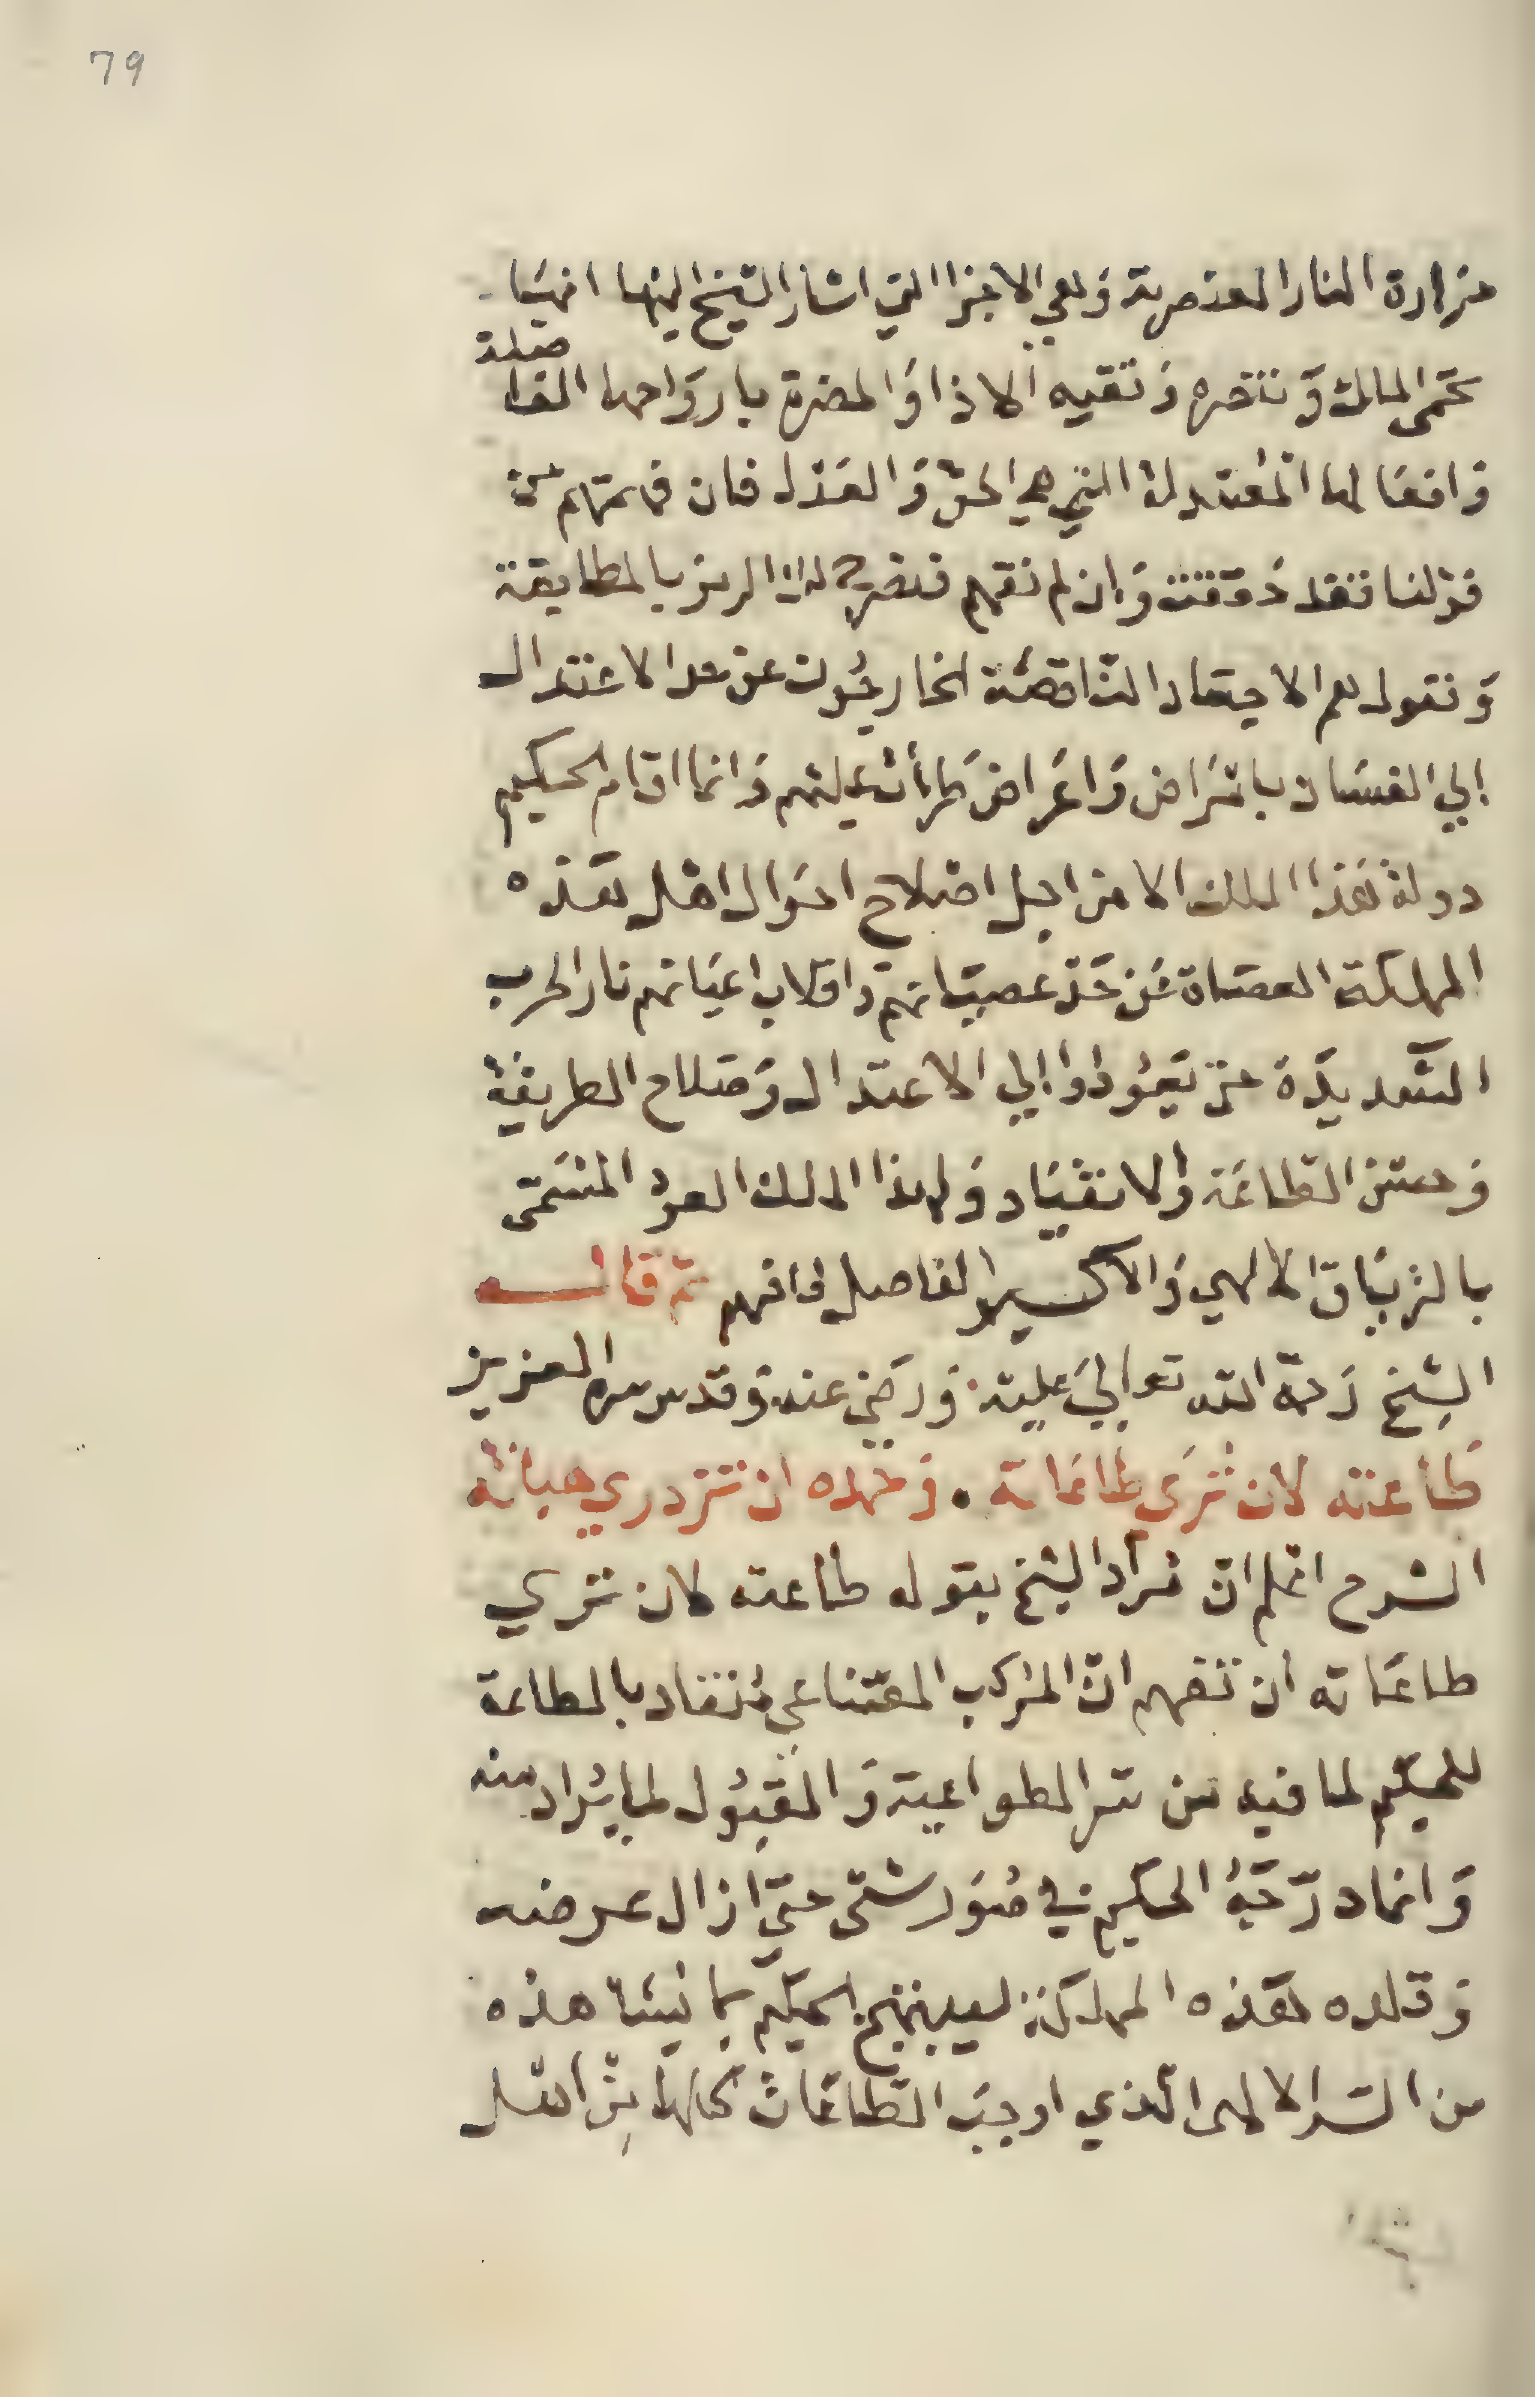 79
حرارة النار العنصرية وهي الاجزا التي اشار الشيخ اليها انها
تحمى المالك وتنصره وتقيه الاذا والمضرة بارواحها الفاضلة
وافعالها المعتدلة التي هي الحق والعدل فان فهمتهم عن
قولنا فقد وفقت وان لم تفهم فنصرح لك الرمز بالمطابقة
ونقول هم الاجساد الناقصة الخارجون عن حد الاعتدال
الي الفساد بامراض واعراض طرأت عليهم وانما اقام الحكيم
دولة هذا الملك الا من اجل اصلاح احوال اهل هذه
المملكة العصاة عن حد عصيانهم واقلاب اعيانهم نار الحرب
الشديدة حتى يعودوا الي الاعتدال وصلاح الطريقة
وحسن الطاعة والانقياد ولهذا الملك العود المسمى
بالترياق الالهي والاكسير الفاضل فافهم ثم قال
الشيخ رحمة الله تعالي عليه ورضي عنه وقدس سره العزيز
طاعته لان ترى طاعاته . وحمده ان تزدري هباته
الشرح اعلم ان مراد الشيخ بقوله طاعته لان تري
طاعاته ان تفهم ان المركب الصناعي منقاد بالطاعة
للحكيم لما فيه من سر الطواعية والقبول لما يراد منه
وانما درجه الحكيم في صور شتى حتى ازال عرضه
وقلده هذه المملكة الحكيم بما شاهده
من السر الالهى الذي اوجب الطاعات كلها من اهل